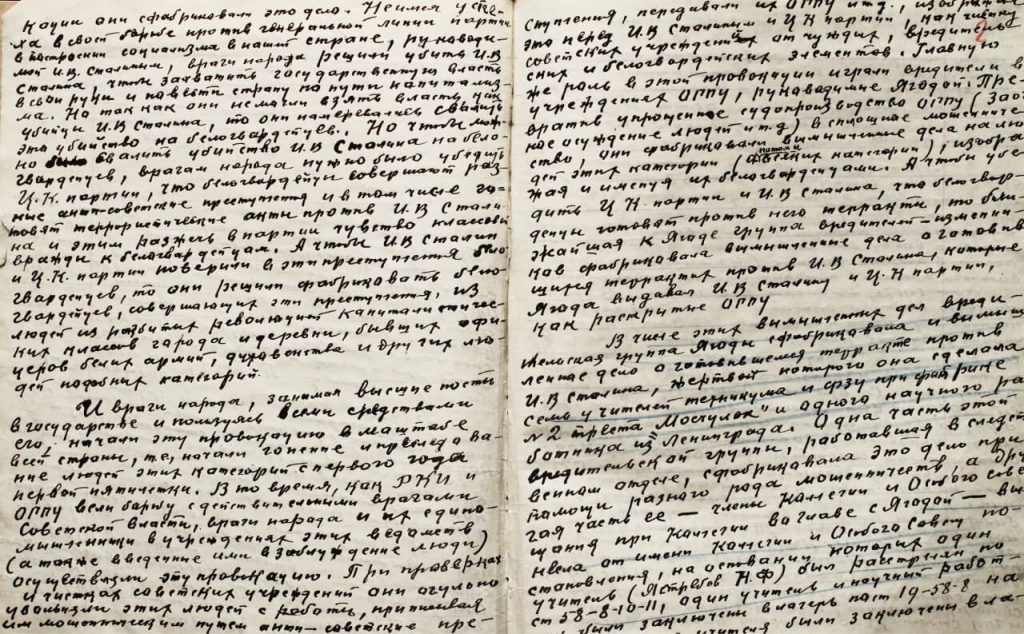 кации они сфабриковали это дело. Не имея успе-
ха в своей борьбе против генеральной линии партии
в построении социализма в нашей стране, руководи-
мой И.В. Сталиным, враги народа решили убить И.В.
Сталина, чтобы захватить государственную власть
в свои руки и повести страну по пути капитализ-
ма. Но так как они не могли взять власть, как
убийцы И.В. Сталина, то они намеревались свалить
это убийство на белогвардейцев. Но чтобы мож-
но было свалить убийство И.В. Сталина на бело-
гвардейцев, врагам народа нужно было убедить
Ц.К. партии, что белогвардейцы совершают раз-
ные анти-советские преступления и в том числе го-
товят террористические акты против И.В. Стали-
на и этим разжечь в партии чувство классовой
вражды к белогвардейцам. А чтобы И.В. Сталин
и Ц.К. партии поверили в эти преступления бело-
гвардейцев, то они решили фабриковать бело-
гвардейцев, совершающих эти преступления, из
людей из разбитых революцией капиталистичес-
ких классов города и деревни, бывших офи-
церов белых армий, духовенства и других лю-
дей подобных категорий.
И враги народа, занимая высшие посты
в государстве и пользуясь всеми средствами
его, начали эту провокацию в масштабе
всей страны, т.е. начали гонение и преследова-
ние людей этих категорий с первого года
первой пятилетки. В то время, как РКИ и
ОГПУ вели борьбу с действительными врагами
Советской власти, враги народа и их едино-
мышленники в учреждениях этих ведомств
(а также введенные ими в заблуждение люди)
осуществляли эту провокацию. При проверках
и чистках советских учреждений они огульно
увольняли этих людей с работы, приписывая
им мошенническим путем анти-советские пре-
ступления, передавали их ОГПУ и т.д., изображая
это перед И.В. Сталиным и Ц.К. партии, как чистку
советских учреждений от чуждых, вредитель-
ских и белогвардейских элементов. Главную
же роль в этой провокации играли вредители в
учреждениях ОГПУ, руководимые Ягодой. Пре-
вратив упрощенное судопроизводство ОГПУ (заоч-
ное осуждение людей и т.д.) в сплошное мошенниче-
ство, они фабриковали вымышленные дела на лю-
дей этих категорий ( категорий), изобра-
жая и именуя их белогвардейцами. А чтобы убе-
дить Ц.К. партии и И.В. Сталина, что белогвар-
дейцы готовят против него терракты, то бли-
жайшая к Ягоде группа вредителей-изменни-
ков фабриковала вымышленные дела о готовив-
шихся террактах против И.В. Сталина, которые
Ягода выдавал И.В. Сталину и Ц.К. партии,
как раскрытые ОГПУ
В числе этих вымышленных дел вреди-
тельская группа Ягоды сфабриковала и вымыш-
ленное дело о готовившемся терракте против
И.В. Сталина, жертвой которого она сделала
семь учителей техникума и фзу при фабрике
№ 2 треста "Мосчулок" и одного научного ра-
ботника из Ленинграда. Одна часть этой
вредительской группы, работавшая в следст-
венном отделе, сфабриковала это дело при
помощи разного рода мошенничеств, а дру-
гая часть ее — члены Коллегии и Особого сове-
щания при Коллегии во главе с Ягодой — вы-
несла от имени Коллегии и Особого Совещ по-
становления, на основании которых один
учитель (Ястребов Н.Ф) был расстрелян по
ст 58-8-10-11, один учитель и научный работ-
были заключены в лагерь по ст 19-58-8 на
учителя были заключены в ла-